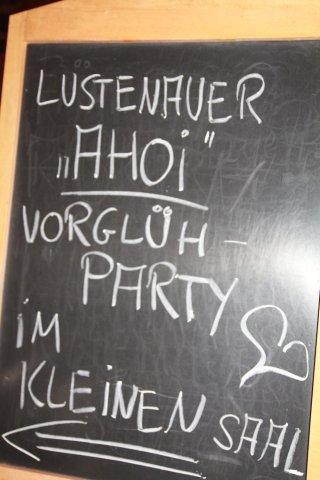 LÜSTENAUER
„AHOi"
VORGLÜH-
PARTY
iM
KLEINEN SAAL